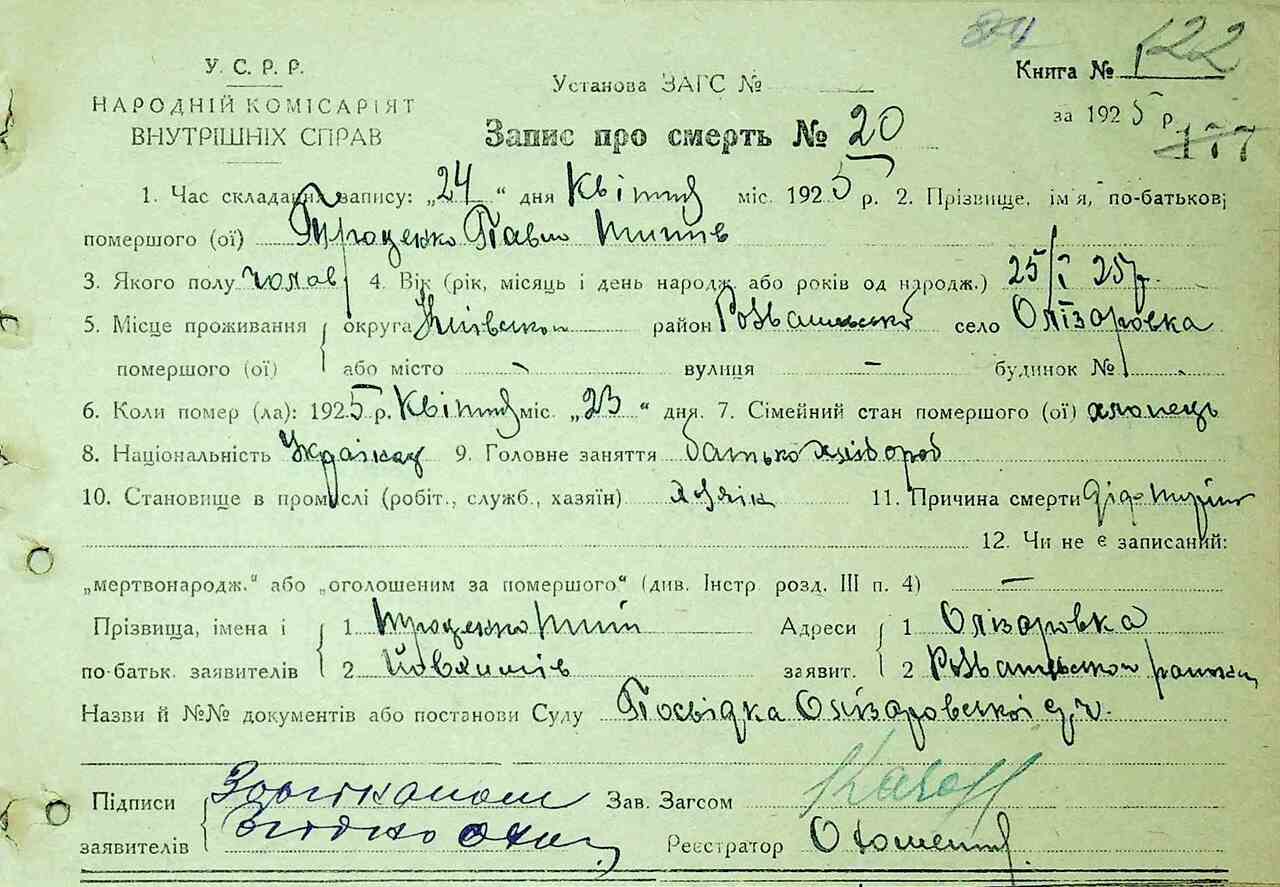 84
122
У. С. Р. Р.
НАРОДНІЙ КОМІСАРІЯТ
ВНУТРІШНІХ СПРАВ
Установа ЗАГС №
Книга №
за 1925 р.
177
Запис про смерть № 20
1. Час складання запису: „24“ дня Квітня міс. 1925 р. 2. Прізвище, ім'я, по-батькові
помершого (ої) Троценко Павло Титів
3. Якого полу чолов 4. Вік (рік, місяць і день народж. або років од народж.) 25/I 25р.
5. Місце проживання округа Київської район Розважевської село Олізаровка
помершого (ої) або місто - вулиця - будинок № -
6. Коли помер (ла): 1925 р. Квітня міс. „23“ дня. 7. Сімейний стан помершого (ої) хлопець
8. Національність 9. Головне заняття батько хлібороб
10. Становище в промислі (робіт., служб., хазяїн) хазяїн 11. Причина смерти
12. Чи не є записаний:
„мертвонародж.“ або „оголошеним за помершого“ (див. Інстр розд. III п. 4) —
Прізвища, імена і 1 Троценко Тит Адреси 1 Олізаровка
по-батьк. заявителів 2 заявит. 2 Розважевської
Назви й №№ документів або постанови Суду Посвідка Олізаровської
Підписи Зав. Загсом
заявителів Реєстратор